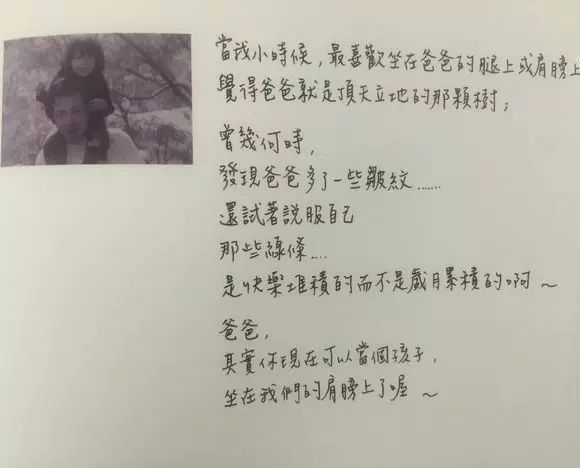 當我小時候，最喜歡坐在爸爸的腿上或肩膀上
覺得爸爸就是頂天立地的那顆樹；
曾幾何時，
發現爸爸多了一些皺紋……
還試著說服自己
那些線條….
是快樂堆積的而不是歲月累積的啊～
爸爸，
其實你現在可以當個孩子，
坐在我們的肩膀上了喔～